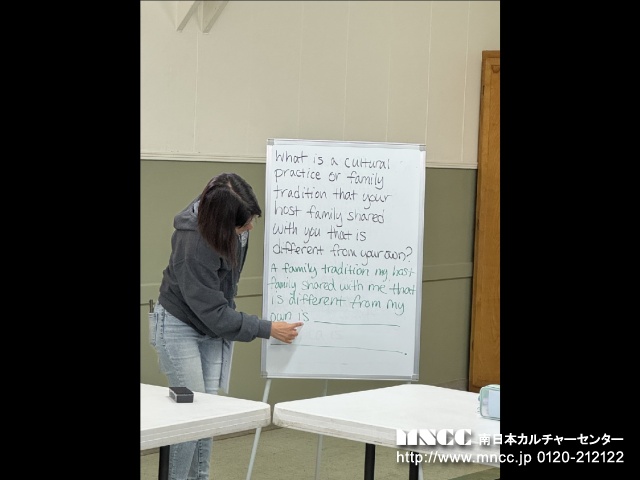 What is a cultural
practice or family
tradition that your
host family shared
with you that is
different from your own?
A family tradition my host
family shared with me that
is different from my
own is
MNCC 南日本カルチャーセンター
http://www.mncc.jp 0120-212122